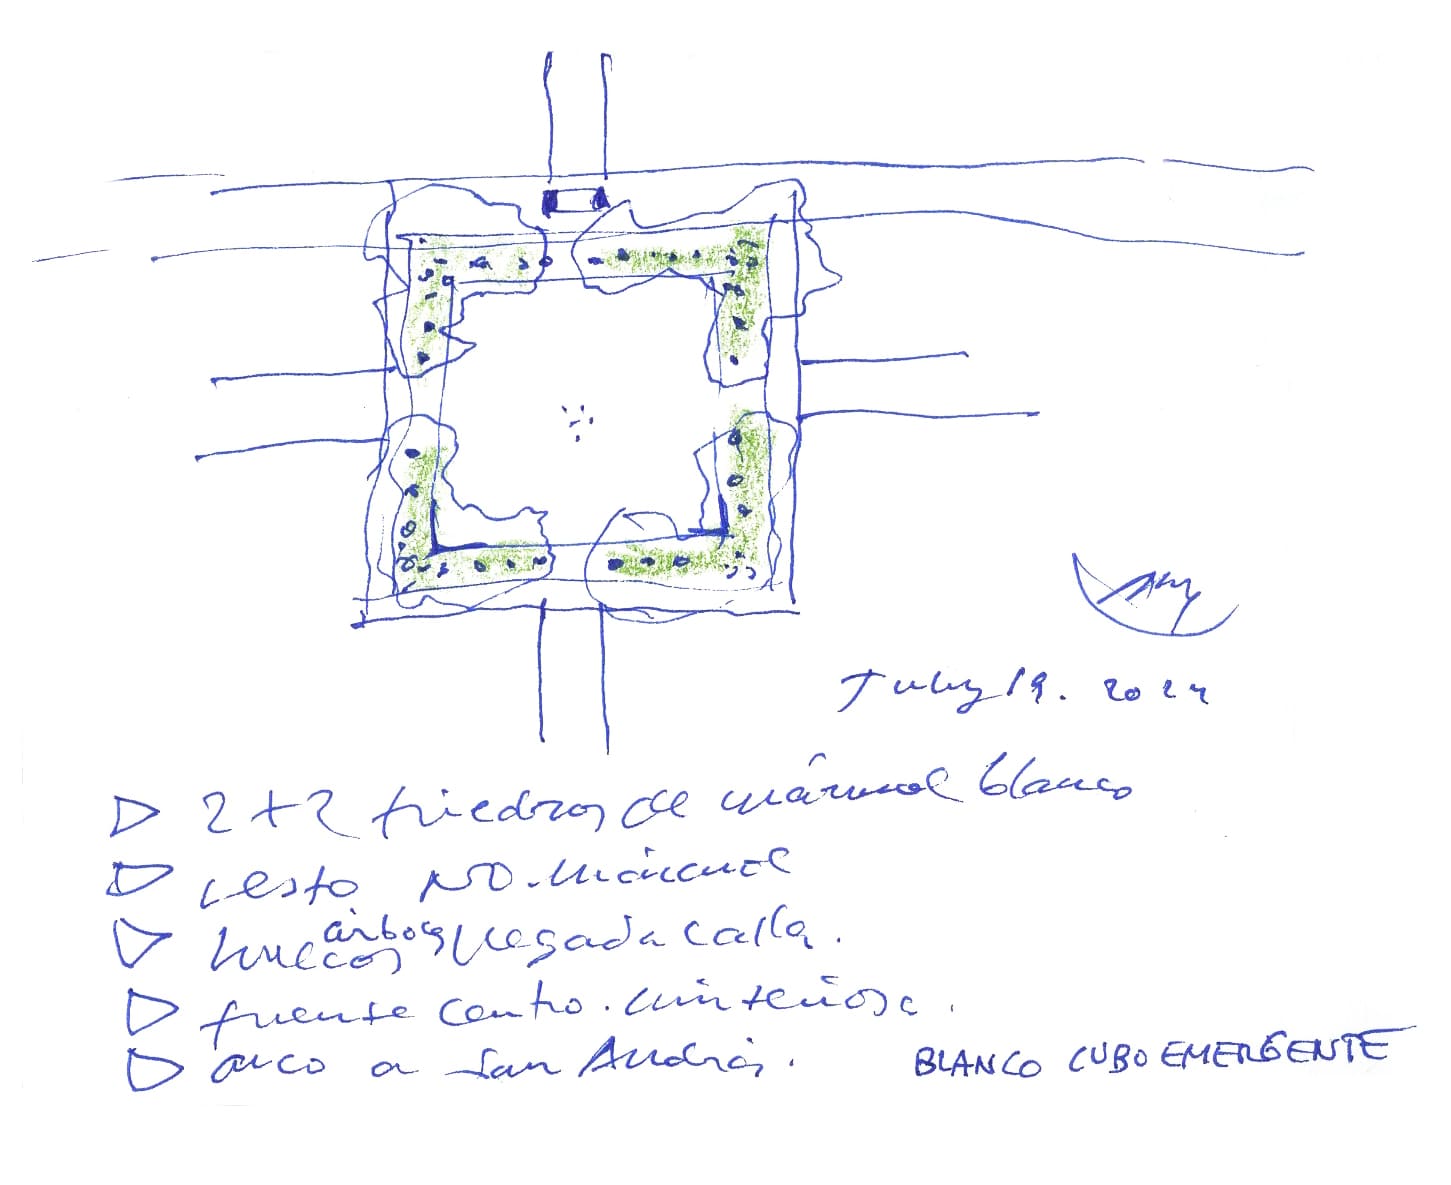 July 19. 2024
2+2 piedras de mármol blanco
resto NO. mármol
huecos árboles llegada calle.
fuente centro. misteriosa.
arco a San Andrés.
BLANCO CUBO EMERGENTE